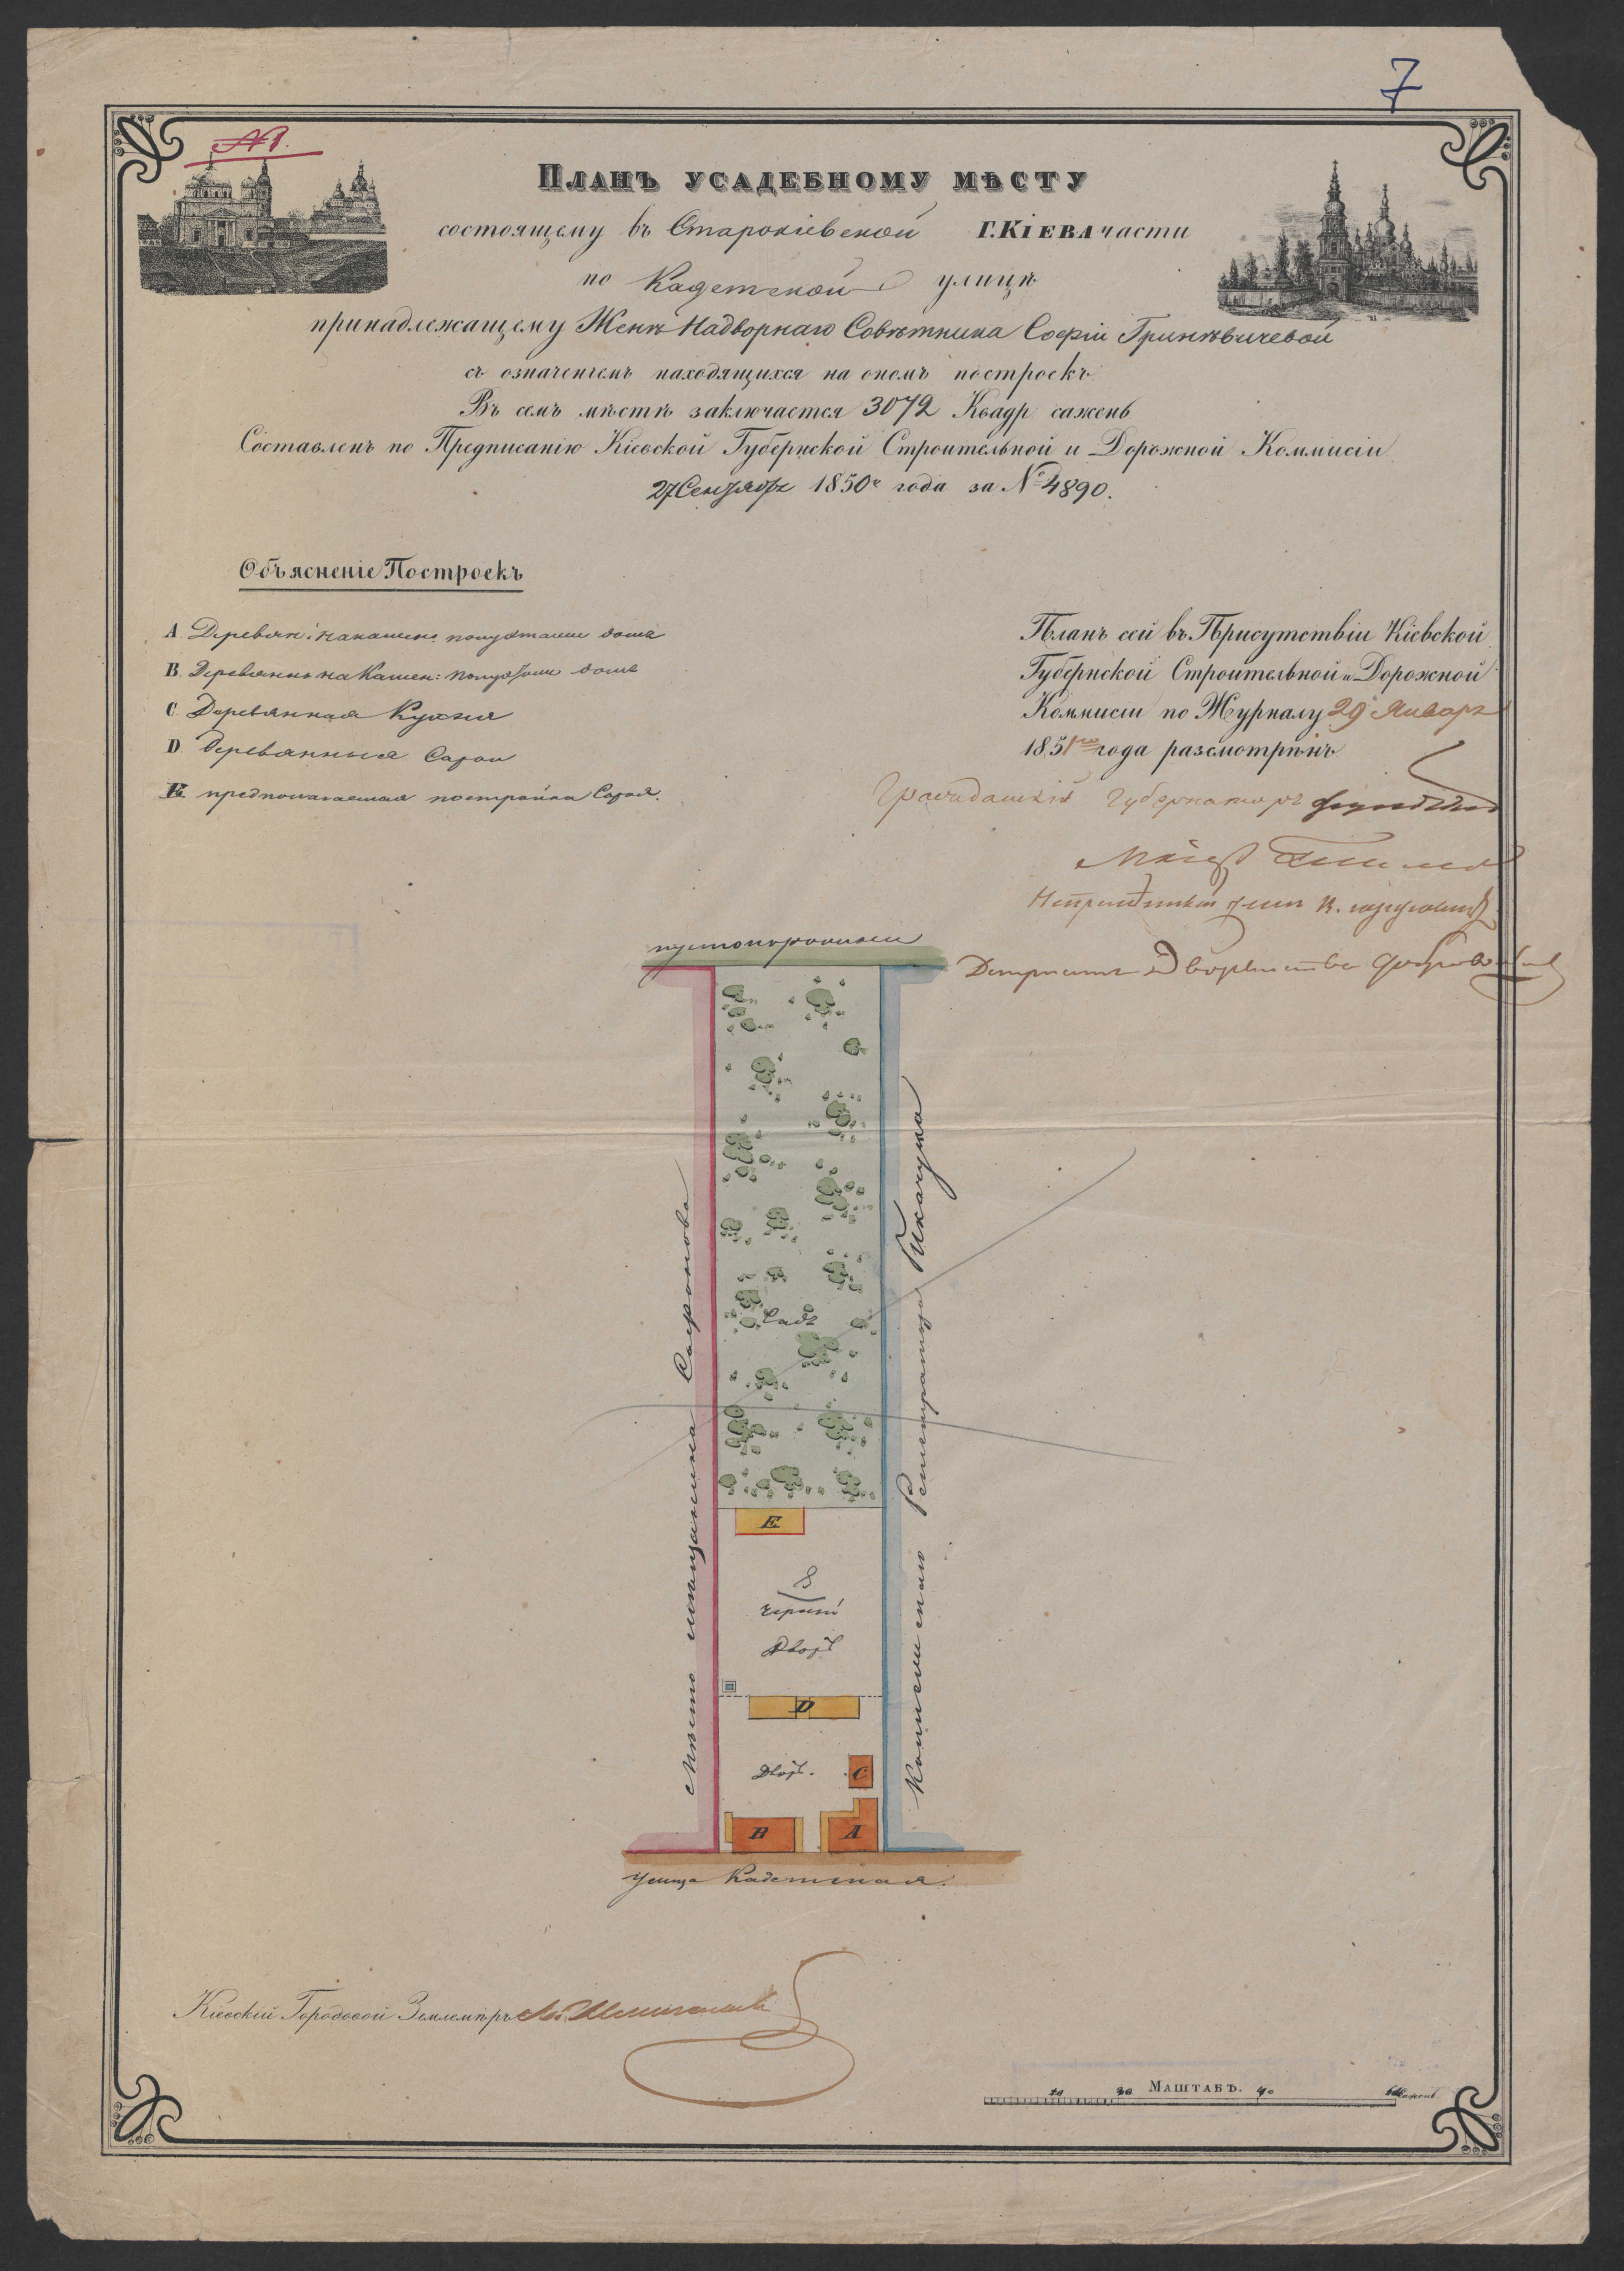 7
№1.
Планъ усадебному мѣсту
состоящему въ Старокіевской Г. Кіева части
по Кадетской улицѣ
принадлежащему Женѣ Надворнаго Совѣтника Софіи Гринѣвичевой
съ означеніемъ находящихся на ономъ построекъ.
Въ семъ мѣстѣ заключается 3072 Квадр: сажень.
Составленъ по Предписанію Кіевской Губернской Строительной и Дорожной Коммисіи
27 Сентября 1850го года за № 4890.
Объясненіе Построекъ
A Деревян: на камен:
B. Деревянно на Камен:
C Деревянная Кухня
D деревянныя Сараи
E. предполагаемая постройка Сарая.
Планъ сей въ Присутствіи Кіевской
Губернской Строительной и Дорожной
Коммисіи по Журналу 29 Января
1851го года разсмотрѣнъ
Гражданскій Губернаторъ
пустопорожнее
Мѣсто мѣщанина Сафонова
Коллежскаго Регистратора Ткачука
Садъ
E
8
черный
Дворъ
D
Дворъ.
C
B
A
Улица Кадетская.
Кіевскій Городовой Землемѣръ
Маштабъ.
20 40 сажень